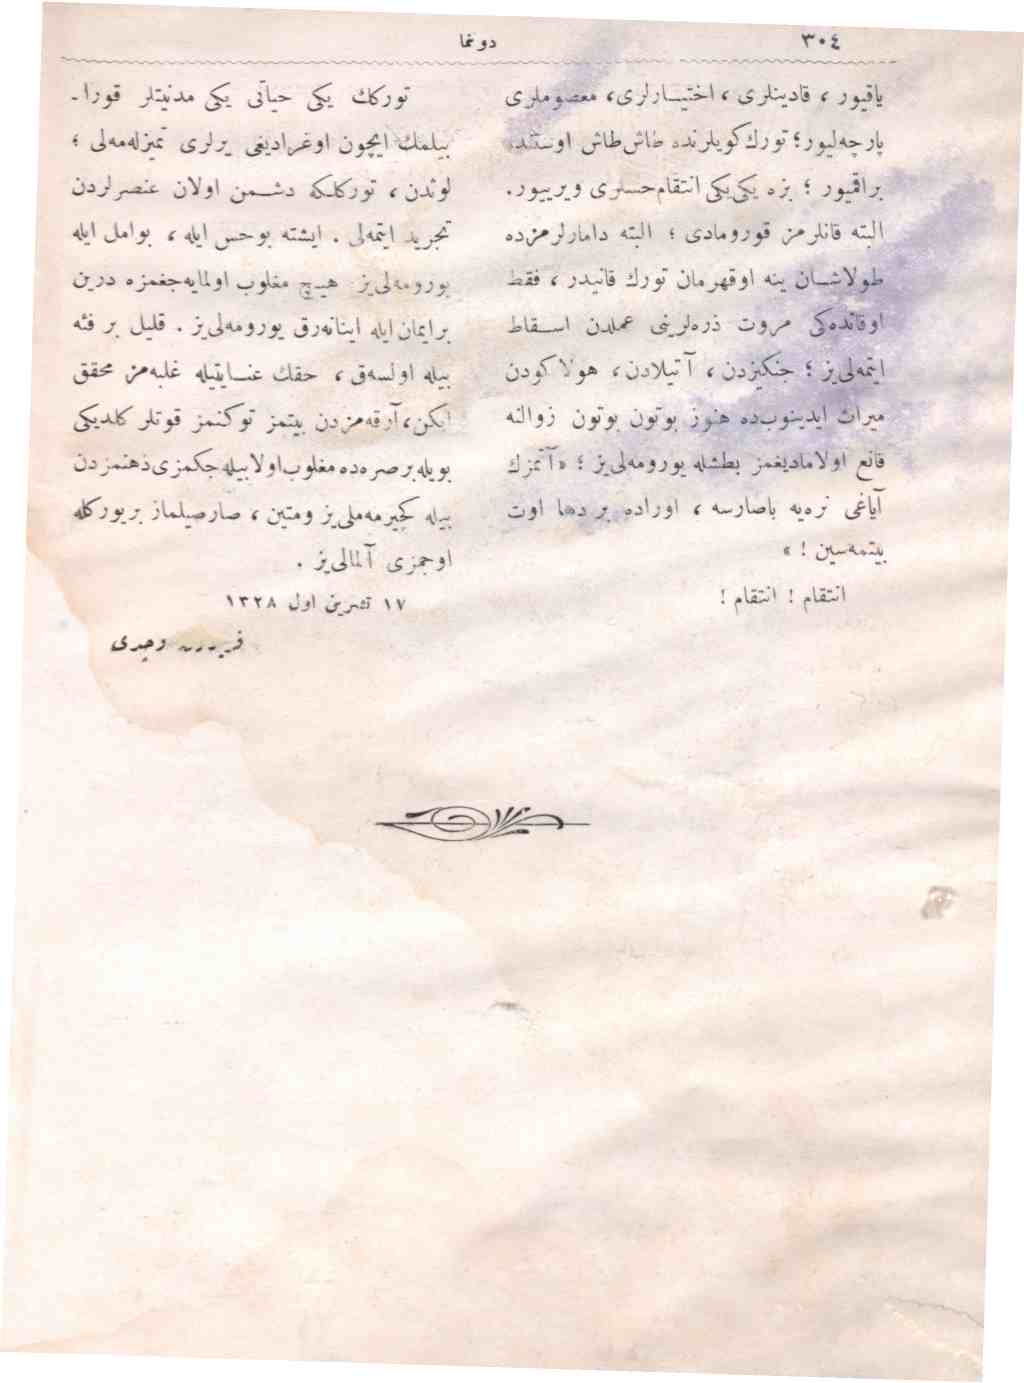 ٣٠٤
دونما
ياقيور ، قادينلرى ، اختيارلرى ، معصوملرى
پارچه‌ليور ؛ تورك كويلرنده طاش طاش اوستنده
براقميور ؛ بزه يكى يكى انتقام حسلرى ويرييور .
البته قانلرمز قورومادى ؛ البته دامارلرمزده
طولاشان ينه اوقهرمان تورك قانيدر ، فقط
اوقانده‌كى مروت ذره‌لرينى عملدن اسقاط
ايتمه‌لى‌يز ؛ جنكيزدن ، آتيلادن ، هولاكودن
ميراث ايدينوب‌ده هنوز بوتون بوتون زوالنه
قانع اولاماديغمز بطشله يورومه‌لى‌يز ؛ «آتمزك
آياغى نره‌يه باصارسه ، اوراده بر دها اوت
بيتمه‌سين ! »
انتقام ! انتقام !
توركك يكى حياتى يكى مدنيتلر قورا -
بيلمك ايچون اوغراديغى يرلرى تميزله‌مه‌لى ؛
لوثدن ، توركلكه دشمن اولان عنصرلردن
تجريد ايتمه‌لى . ايشته بوحس ايله ، بوامل ايله
يورومه‌لى‌يز . هيچ مغلوب اولمايه‌جغمزه درين
برايمان ايله اينانه‌رق يورومه‌لى‌يز . قليل بر فئه
بيله اولسه‌ق ، حقك عنايتيله غلبه‌مز محقق
ايكن ، آرقه‌مزدن بيتمز توكنمز قوتلر كلديكى
بويله برصره‌ده مغلوب اولابيله‌جكمزى ذهنمزدن
بيله كچيرمه‌ملى‌يز ومتين ، صارصيلماز بريوركله
اوجمزى آلمالى‌يز .
١٧ تشرين اول ١٣٢٨
وجدى